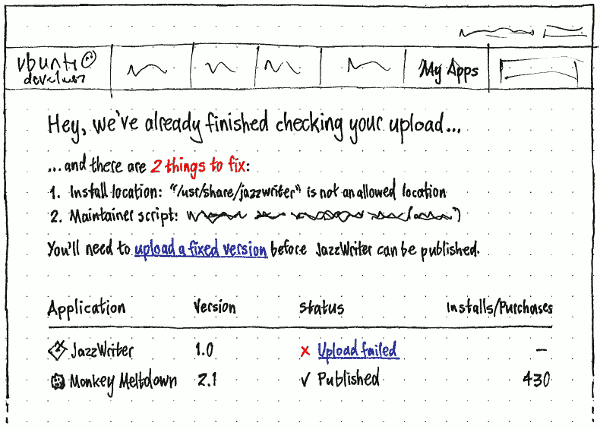 ubuntu
developer
My Apps
Hey, we've already finished checking your upload...
...and there are 2 things to fix:
1. Install location: "/usr/share/jazzwriter" is not an allowed location
2. Maintainer script:
You'll need to upload a fixed version before JazzWriter can be published.
Application Version Status Installs/Purchases
JazzWriter 1.0 ✗ Upload failed –
Monkey Meltdown 2.1 ✓ Published 430